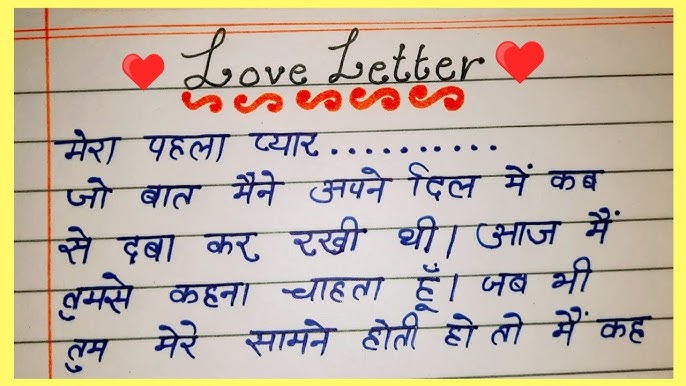 Love Letter
मेरा पहला प्यार..........
जो बात मैने अपने दिल में कब
से दबा कर रखी थी। आज मैं
तुमसे कहना चाहता हूँ। जब भी
तुम मेरे सामने होती हो तो मैं कह